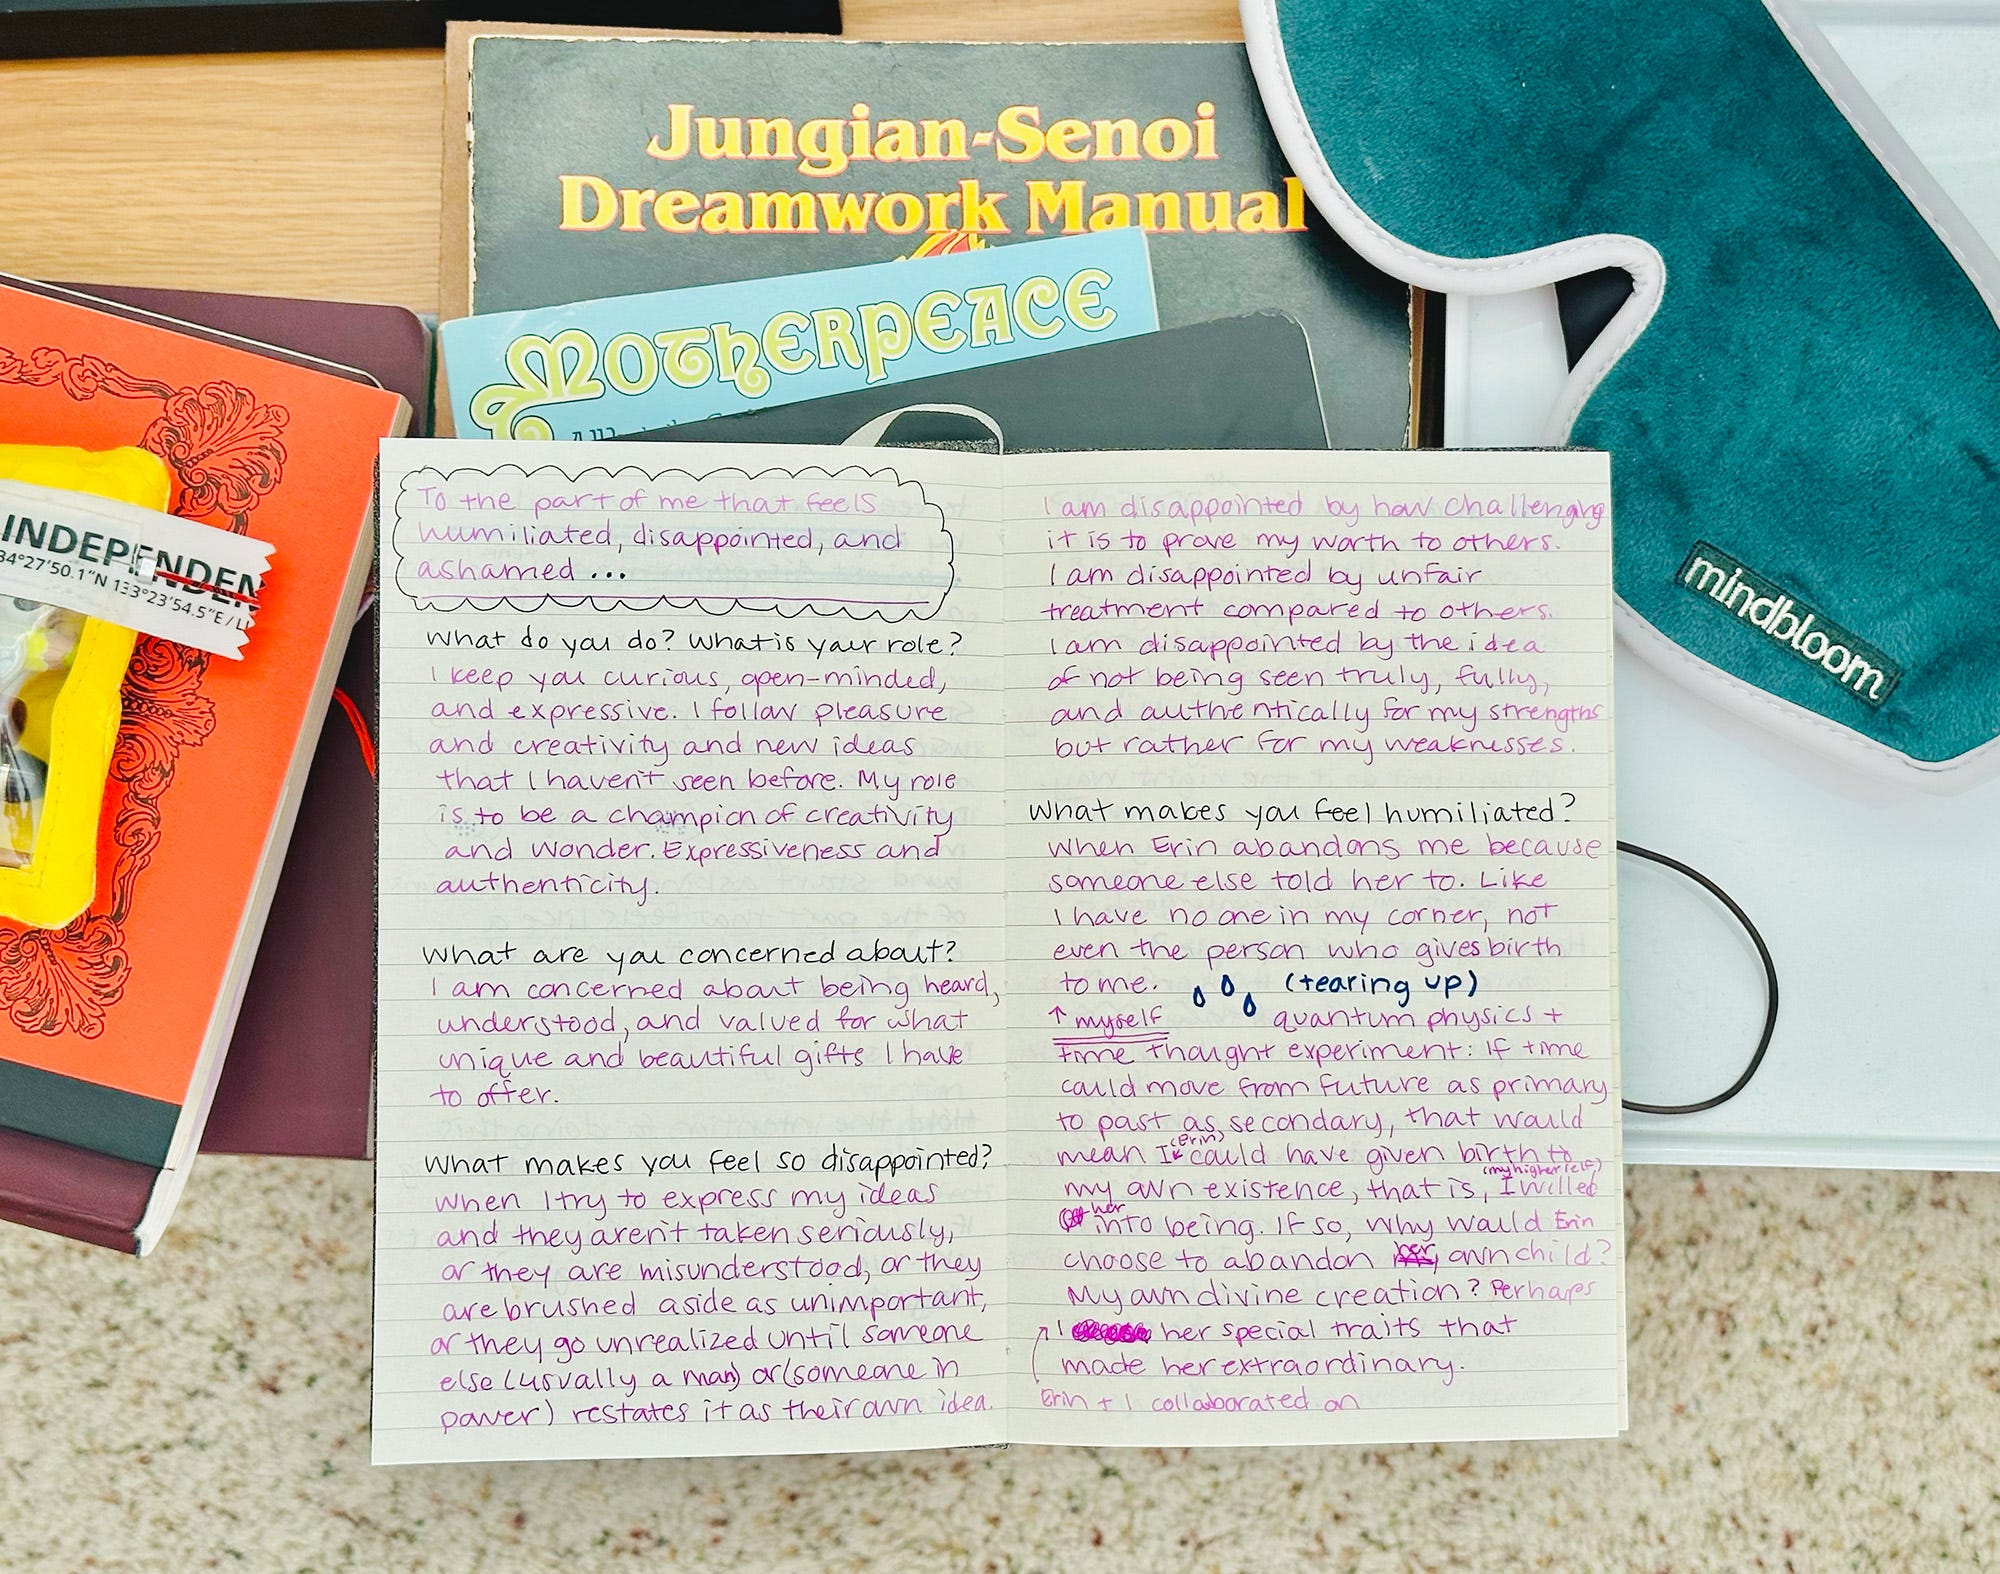 Jungian-Senoi
Dreamwork Manual
MOTHERPEACE
INDEPENDEN
34°27'50.1"N 133°23'54.5"E/
mindbloom
To the part of me that feels
humiliated, disappointed, and
ashamed ...
What do you do? What is your role?
I keep you curious, open-minded,
and expressive. I follow pleasure
and creativity and new ideas
that I haven't seen before. My role
is to be a champion of creativity
and wonder. Expressiveness and
authenticity.
What are you concerned about?
I am concerned about being heard,
understood, and valued for what
unique and beautiful gifts I have
to offer.
What makes you feel so disappointed?
When I try to express my ideas
and they aren't taken seriously,
or they are misunderstood, or they
are brushed aside as unimportant,
or they go unrealized until someone
else (usually a man) or (someone in
power) restates it as their own idea.
I am disappointed by how challenging
it is to prove my worth to others.
I am disappointed by unfair
treatment compared to others.
I am disappointed by the idea
of not being seen truly, fully,
and authentically for my strengths
but rather for my weaknesses.
What makes you feel humiliated?
When Erin abandons me because
someone else told her to. Like
I have no one in my corner, not
even the person who gives birth
to me. (tearing up)
↑ myself quantum physics +
time thought experiment: If time
could move from future as primary
to past as secondary, that would
(Erin)
mean I could have given birth to
(my higher self)
my own existence, that is, I willed
her
into being. If so, why would Erin
choose to abandon her own child?
My own divine creation? Perhaps
I her special traits that
made her extraordinary.
Erin + I collaborated on